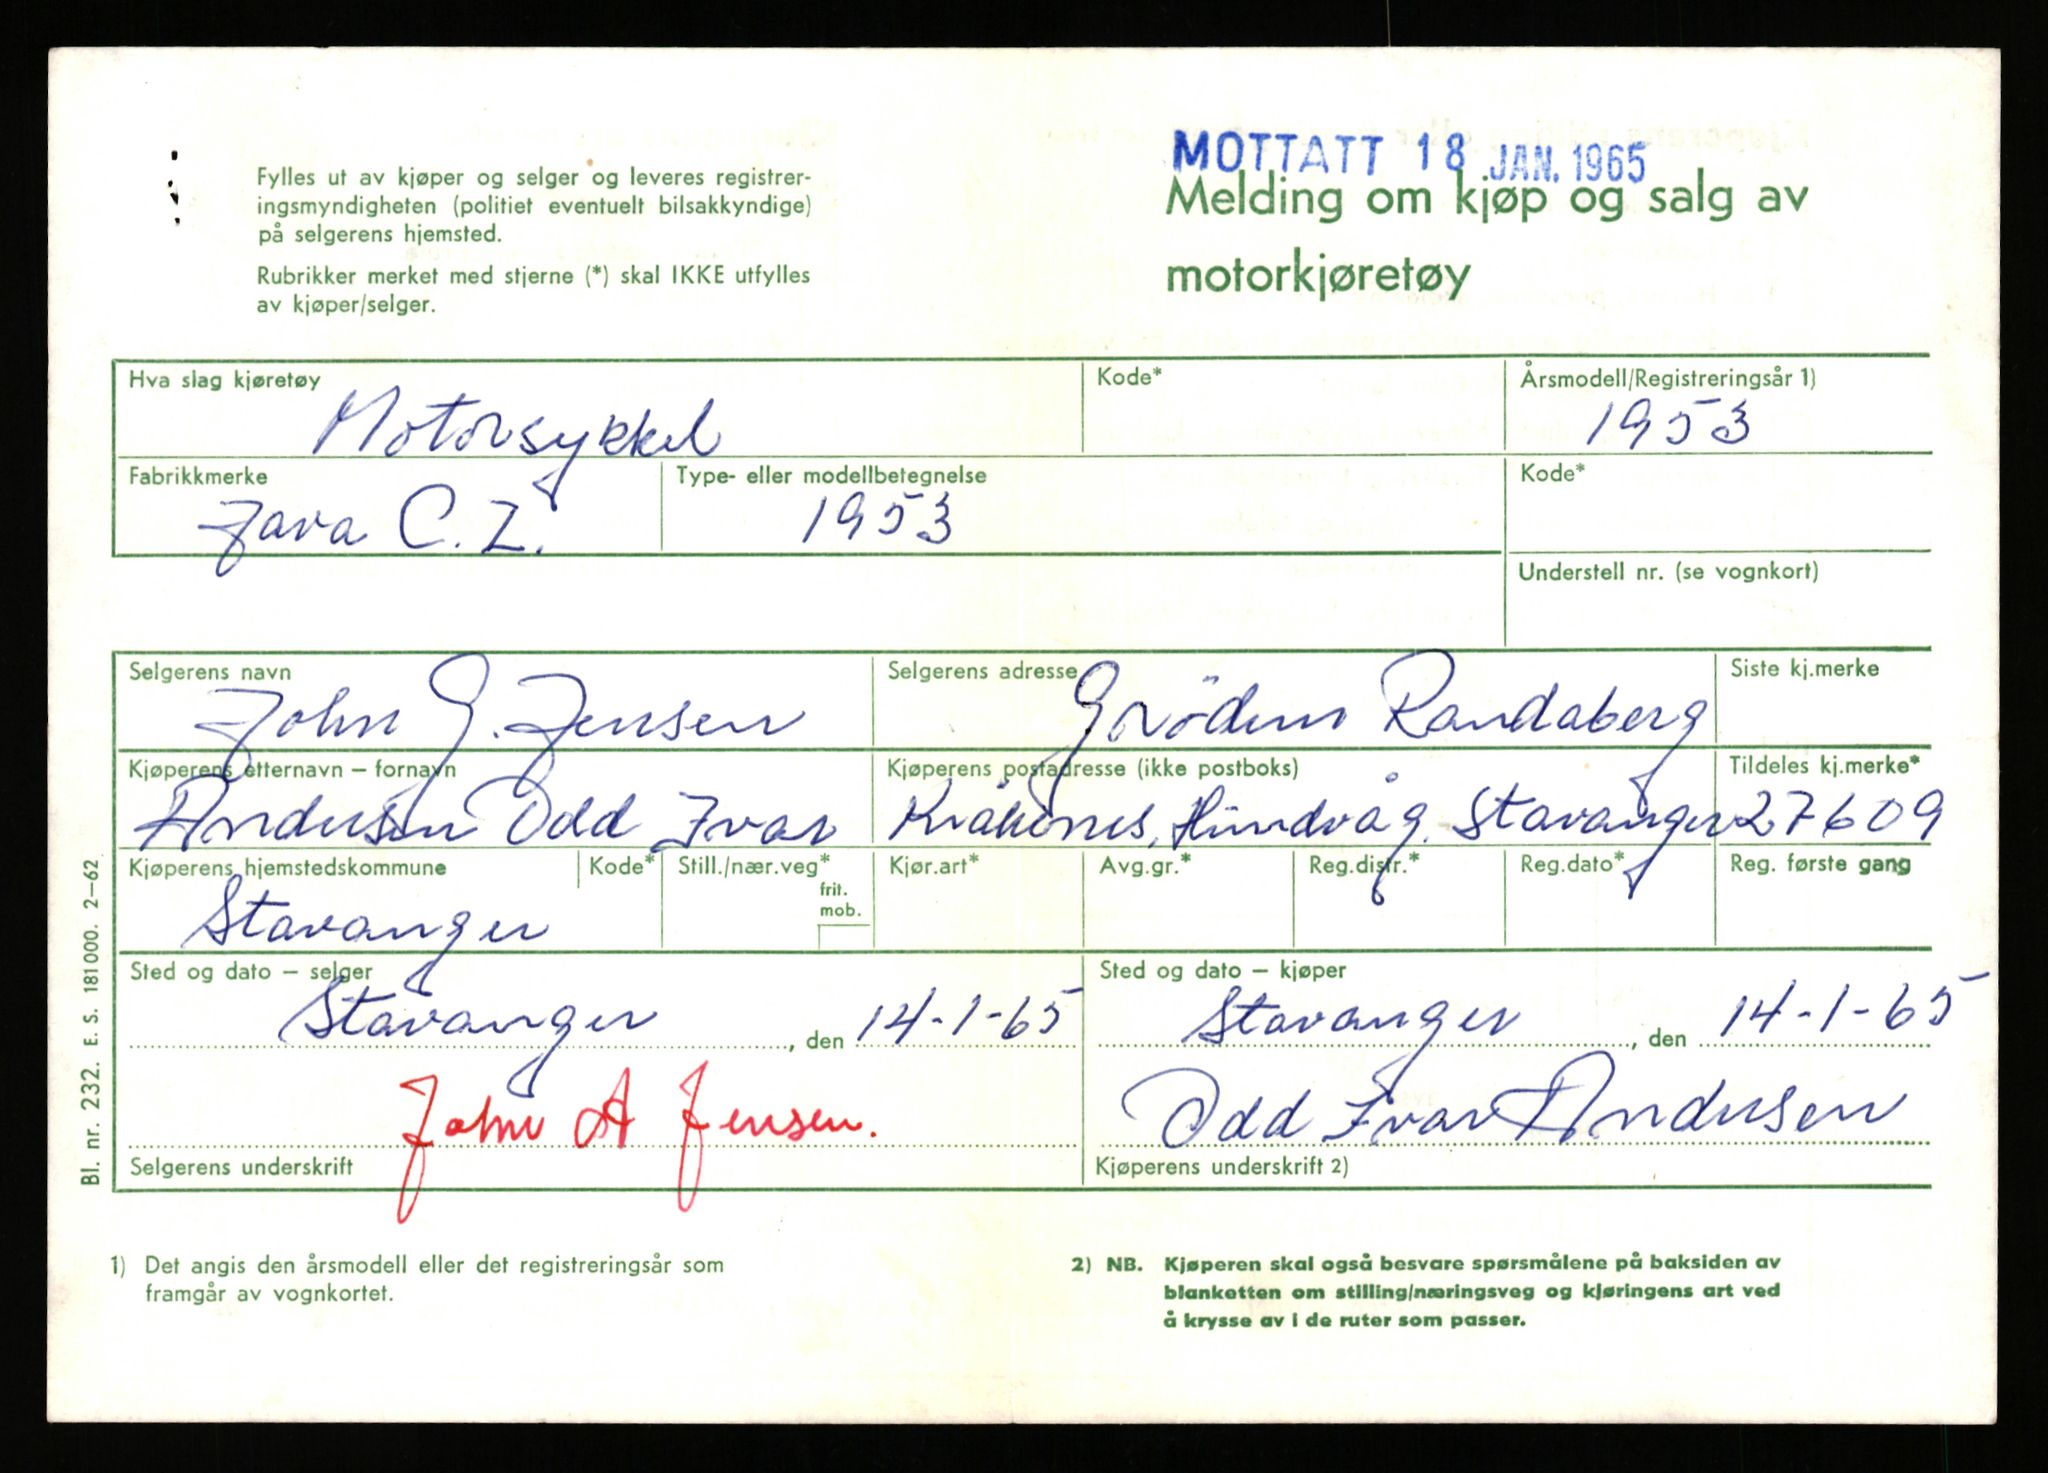 MOTTATT 18 JAN. 1965
Fylles ut av kjøper og selger og leveres registrer-
ingsmyndigheten (politiet eventuelt bilsakkyndige)
på selgerens hjemsted.
Rubrikker merket med stjerne (*) skal IKKE utfylles
av kjøper/selger.
Melding om kjøp og salg av
motorkjøretøy
Hva slag kjøretøy Kode* Årsmodell/Registreringsår 1)
Motorsykkel 1953
Fabrikkmerke Type- eller modellbetegnelse Kode*
Java C. Z. 1953
Understell nr. (se vognkort)
Selgerens navn Selgerens adresse Siste kj.merke
John G. Jensen Grödem Randaberg
Kjøperens etternavn – fornavn Kjøperens postadresse (ikke postboks) Tildeles kj.merke*
Andersen Odd Ivar Kråkenes, Hundvåg, Stavanger 27609
Kjøperens hjemstedskommune Kode* Still./nær.veg* Kjør.art* Avg.gr.* Reg.distr.* Reg.dato* Reg. første gang
frit.
mob.
Stavanger
Sted og dato – selger Sted og dato – kjøper
Stavanger, den 14-1-65 Stavanger, den 14-1-65
John A Jensen. Odd Ivar Andersen
Selgerens underskrift Kjøperens underskrift 2)
1) Det angis den årsmodell eller det registreringsår som
framgår av vognkortet.
2) NB. Kjøperen skal også besvare spørsmålene på baksiden av
blanketten om stilling/næringsveg og kjøringens art ved
å krysse av i de ruter som passer.
Bl. nr. 232. E. S. 181 000. 2–62